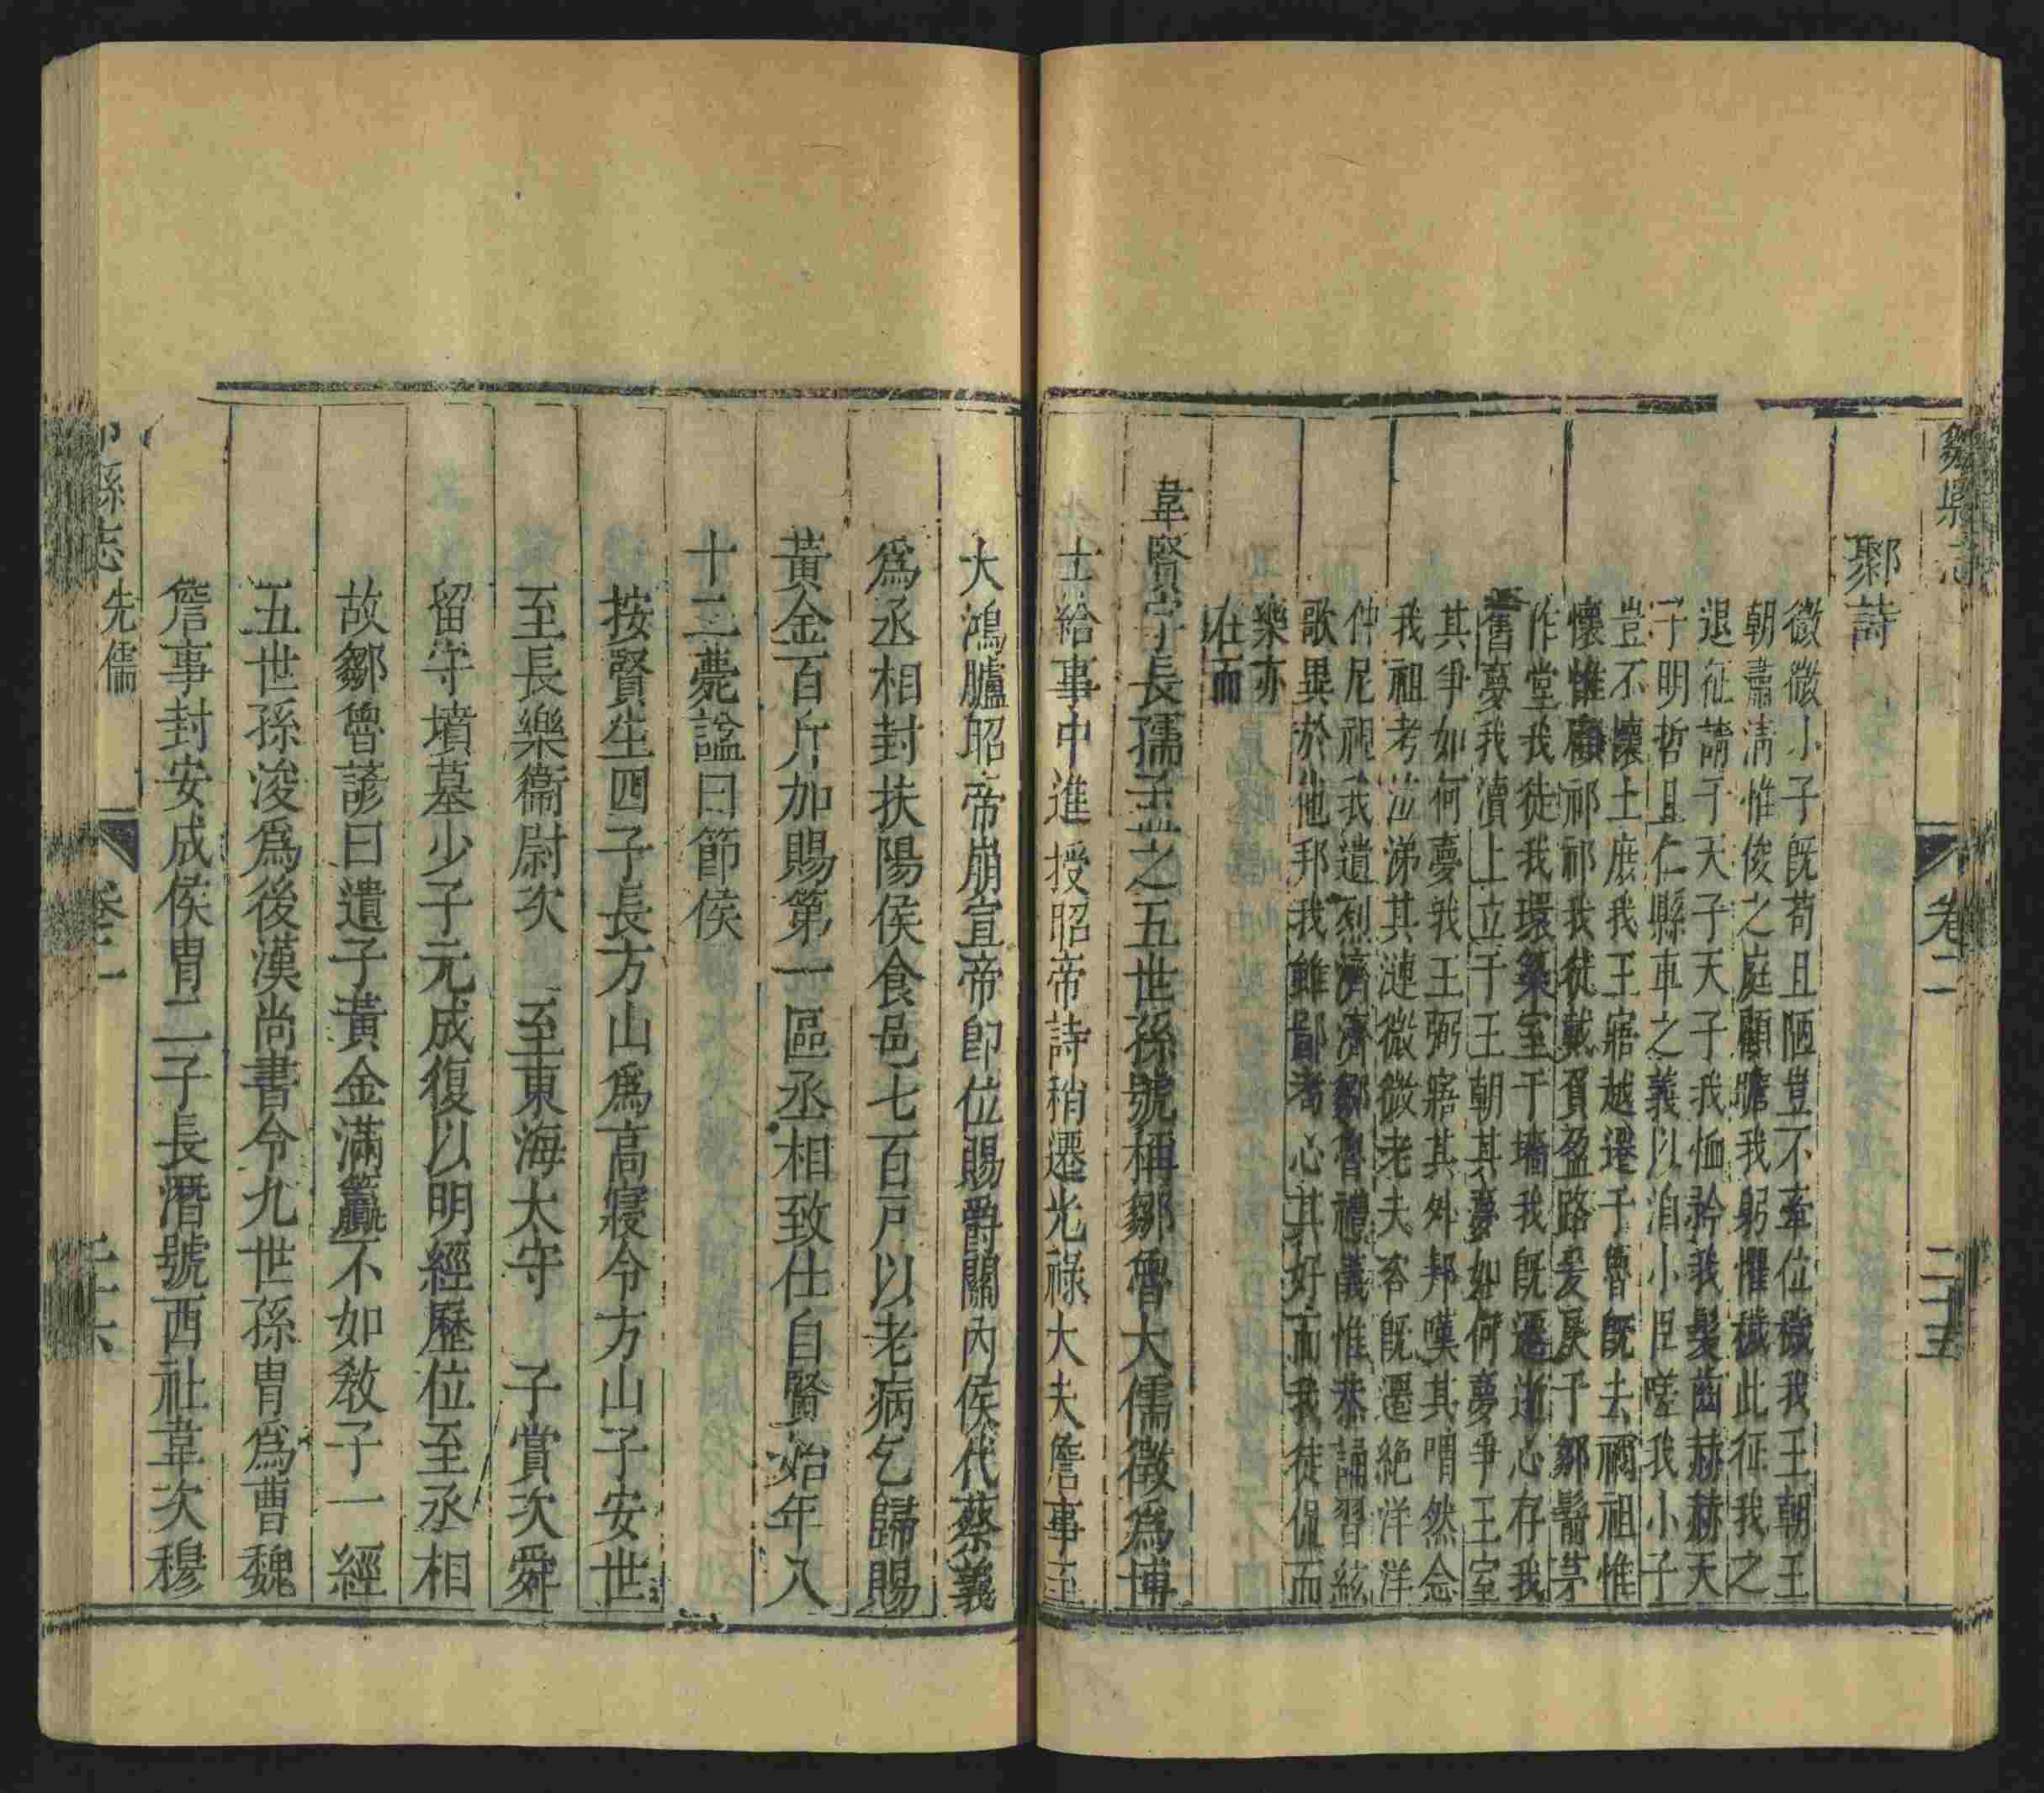 鄒縣志
卷二
二十五
鄹詩
微微小子既苟且陋豈不牽位穢我王朝王
朝肅清惟俊之庭顧瞻我躬懼穢此征我之
退征請于天子天子我恤矜我髮齒赫赫天
子明哲且仁縣車之義以洎小臣嗟我小子
豈不懷土庶我王寤越遷于魯既去禰祖惟
懷惟顧祁祁我徒戴負盈路爰戾于鄒鬋茅
作堂我徒我環築室于墻我既遷逝心存我
舊夢我瀆上立于王朝其夢如何夢爭王室
其爭如何夢我王弼寤其外邦嘆其喟然念
我祖考泣涕其漣微微老夫咨既遷絕洋洋
仲尼視我遺烈濟濟鄒魯禮義惟恭誦習絃
歌異於他邦我雖鄙耇心其好而我徒侃而
樂亦
在而
韋賢字長孺孟之五世孫號稱鄒魯大儒徵爲博
士給事中進授昭帝詩稍遷光祿大夫詹事至
大鴻臚昭帝崩宣帝卽位賜爵關內侯代蔡義
爲丞相封扶陽侯食邑七百戶以老病乞歸賜
黃金百斤加賜第一區丞相致仕自賢始年八
十二薨諡曰節侯
按賢生四子長方山爲高寢令方山子安世
至長樂衞尉次 至東海太守 子賞次舜
留守墳墓少子元成復以明經歷位至丞相
故鄒魯諺曰遺子黃金滿籯不如教子一經
五世孫浚爲後漢尚書令九世孫胄爲曹魏
詹事封安成侯胄二子長潛號西祉韋次穆
縣志
先儒
卷二
二十六